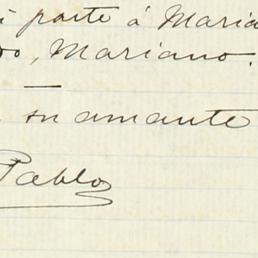 parte á Maria
do, Mariano.
su amante
Pablo